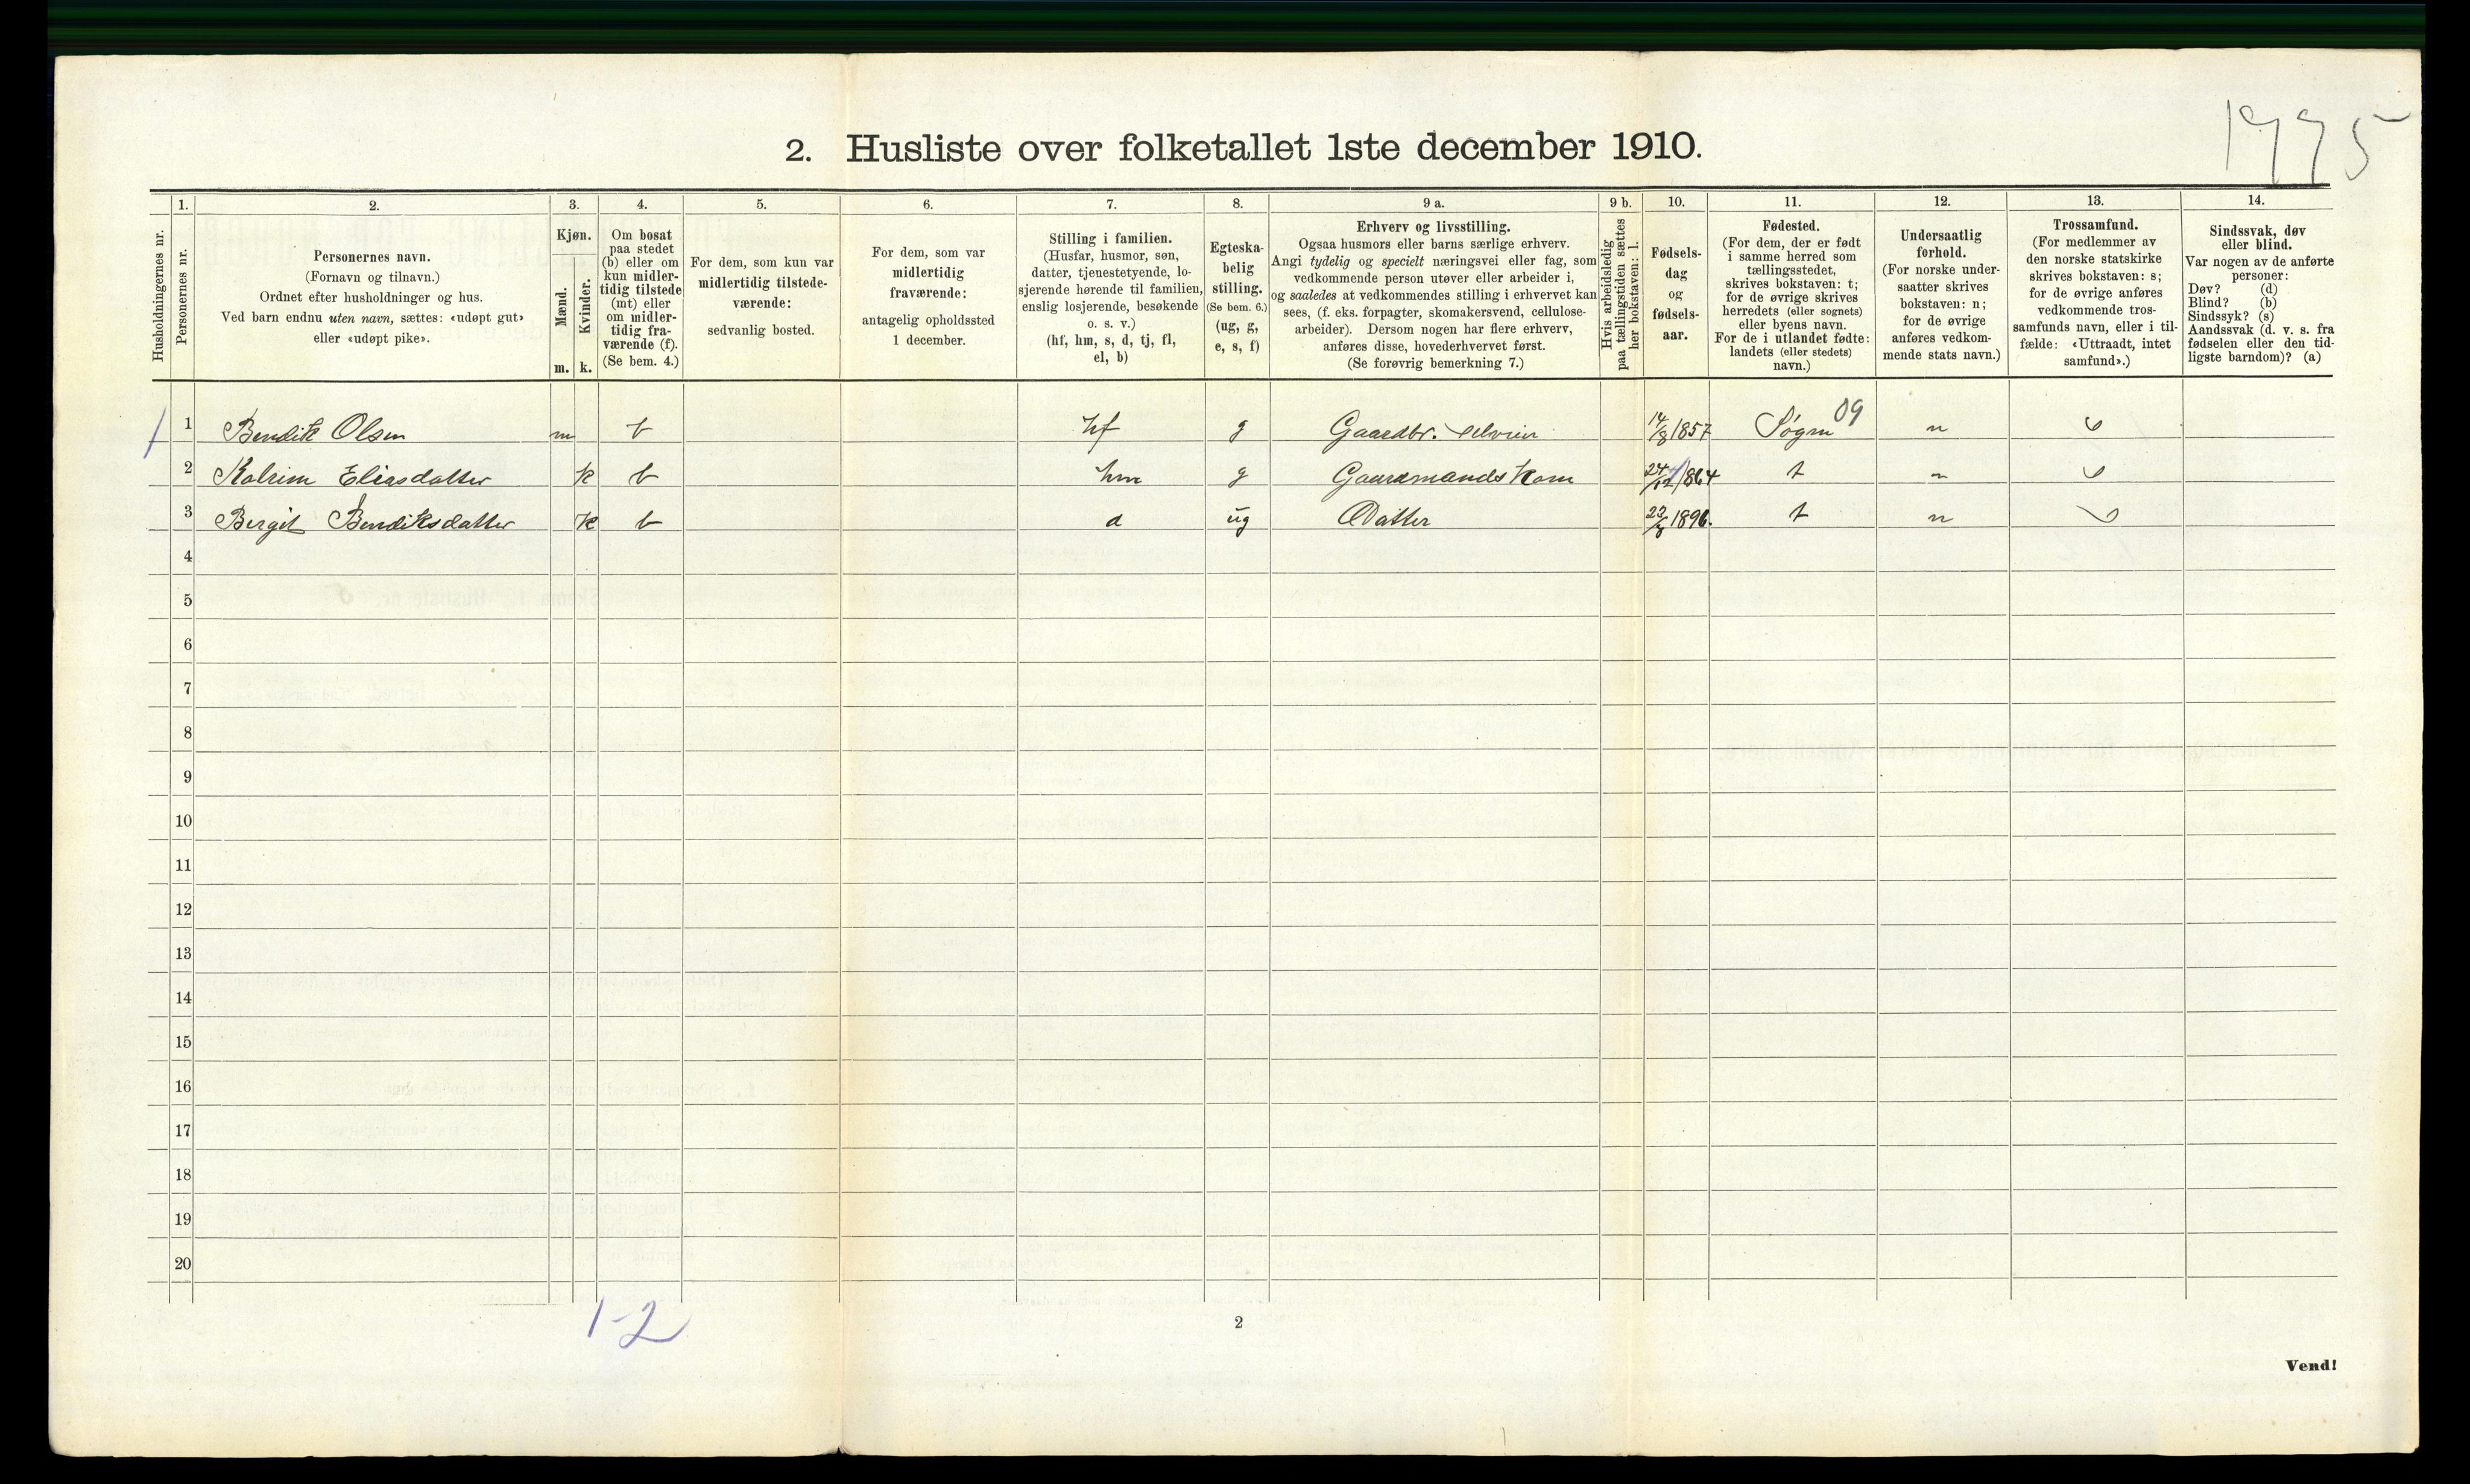 1995
2. Husliste over folketallet 1ste december 1910.
Husholdningernes nr.
1.
Personernes nr.
2.
Personernes navn.
(Fornavn og tilnavn.)
Ordnet efter husholdninger og hus.
Ved barn endnu uten navn, sættes: «udøpt gut»
eller «udøpt pike».
3.
Kjøn.
Mænd.
Kvinder.
m. k.
4.
Om bosat
paa stedet
(b) eller om
kun midler-
tidig tilstede
(mt) eller
om midler-
tidig fra-
værende (f).
(Se bem. 4.)
5.
For dem, som kun var
midlertidig tilstede-
værende:
sedvanlig bosted.
6.
For dem, som var
midlertidig
fraværende:
antagelig opholdssted
1 december.
7.
Stilling i familien.
(Husfar, husmor, søn,
datter, tjenestetyende, lo-
sjerende hørende til familien,
enslig losjerende, besøkende
o. s. v.)
(hf, hm, s, d, tj, fl,
el, b)
8.
Egteska-
belig
stilling.
(Se bem. 6.)
(ug, g,
e, s, f)
9 a.
Erhverv og livsstilling.
Ogsaa husmors eller barns særlige erhverv.
Angi tydelig og specielt næringsvei eller fag, som
vedkommende person utøver eller arbeider i,
og saaledes at vedkommendes stilling i erhvervet kan
sees, (f. eks. forpagter, skomakersvend, cellulose-
arbeider). Dersom nogen har flere erhverv,
anføres disse, hovederhvervet først.
(Se forøvrig bemerkning 7.)
9 b.
Hvis arbeidsledig
paa tællingstiden sættes
her bokstaven: l.
10.
Fødsels-
dag
og
fødsels-
aar.
11.
Fødested.
(For dem, der er født
i samme herred som
tællingsstedet,
skrives bokstaven: t;
for de øvrige skrives
herredets (eller sognets)
eller byens navn.
For de i utlandet fødte:
landets (eller stedets)
navn.)
12.
Undersaatlig
forhold.
(For norske under-
saatter skrives
bokstaven: n;
for de øvrige
anføres vedkom-
mende stats navn.)
13.
Trossamfund.
(For medlemmer av
den norske statskirke
skrives bokstaven: s;
for de øvrige anføres
vedkommende tros-
samfunds navn, eller i til-
fælde: «Uttraadt, intet
samfund».)
14.
Sindssvak, døv
eller blind.
Var nogen av de anførte
personer:
Døv? (d)
Blind? (b)
Sindssyk? (s)
Aandssvak (d. v. s. fra
fødselen eller den tid-
ligste barndom)? (a)
1 1 Bendik Olsen m b hf g Gaardbr. 14/8 1857 Søgne 09 n s
2 Katrine Eliasdatter k b hm g Gaardmands Kone 1864 t n s
3 Bergit Bendiksdatter k b d ug Datter 1896. t n s
4
5
6
7
8
9
10
11
12
13
14
15
16
17
18
19
20
1-2
2
Vend!